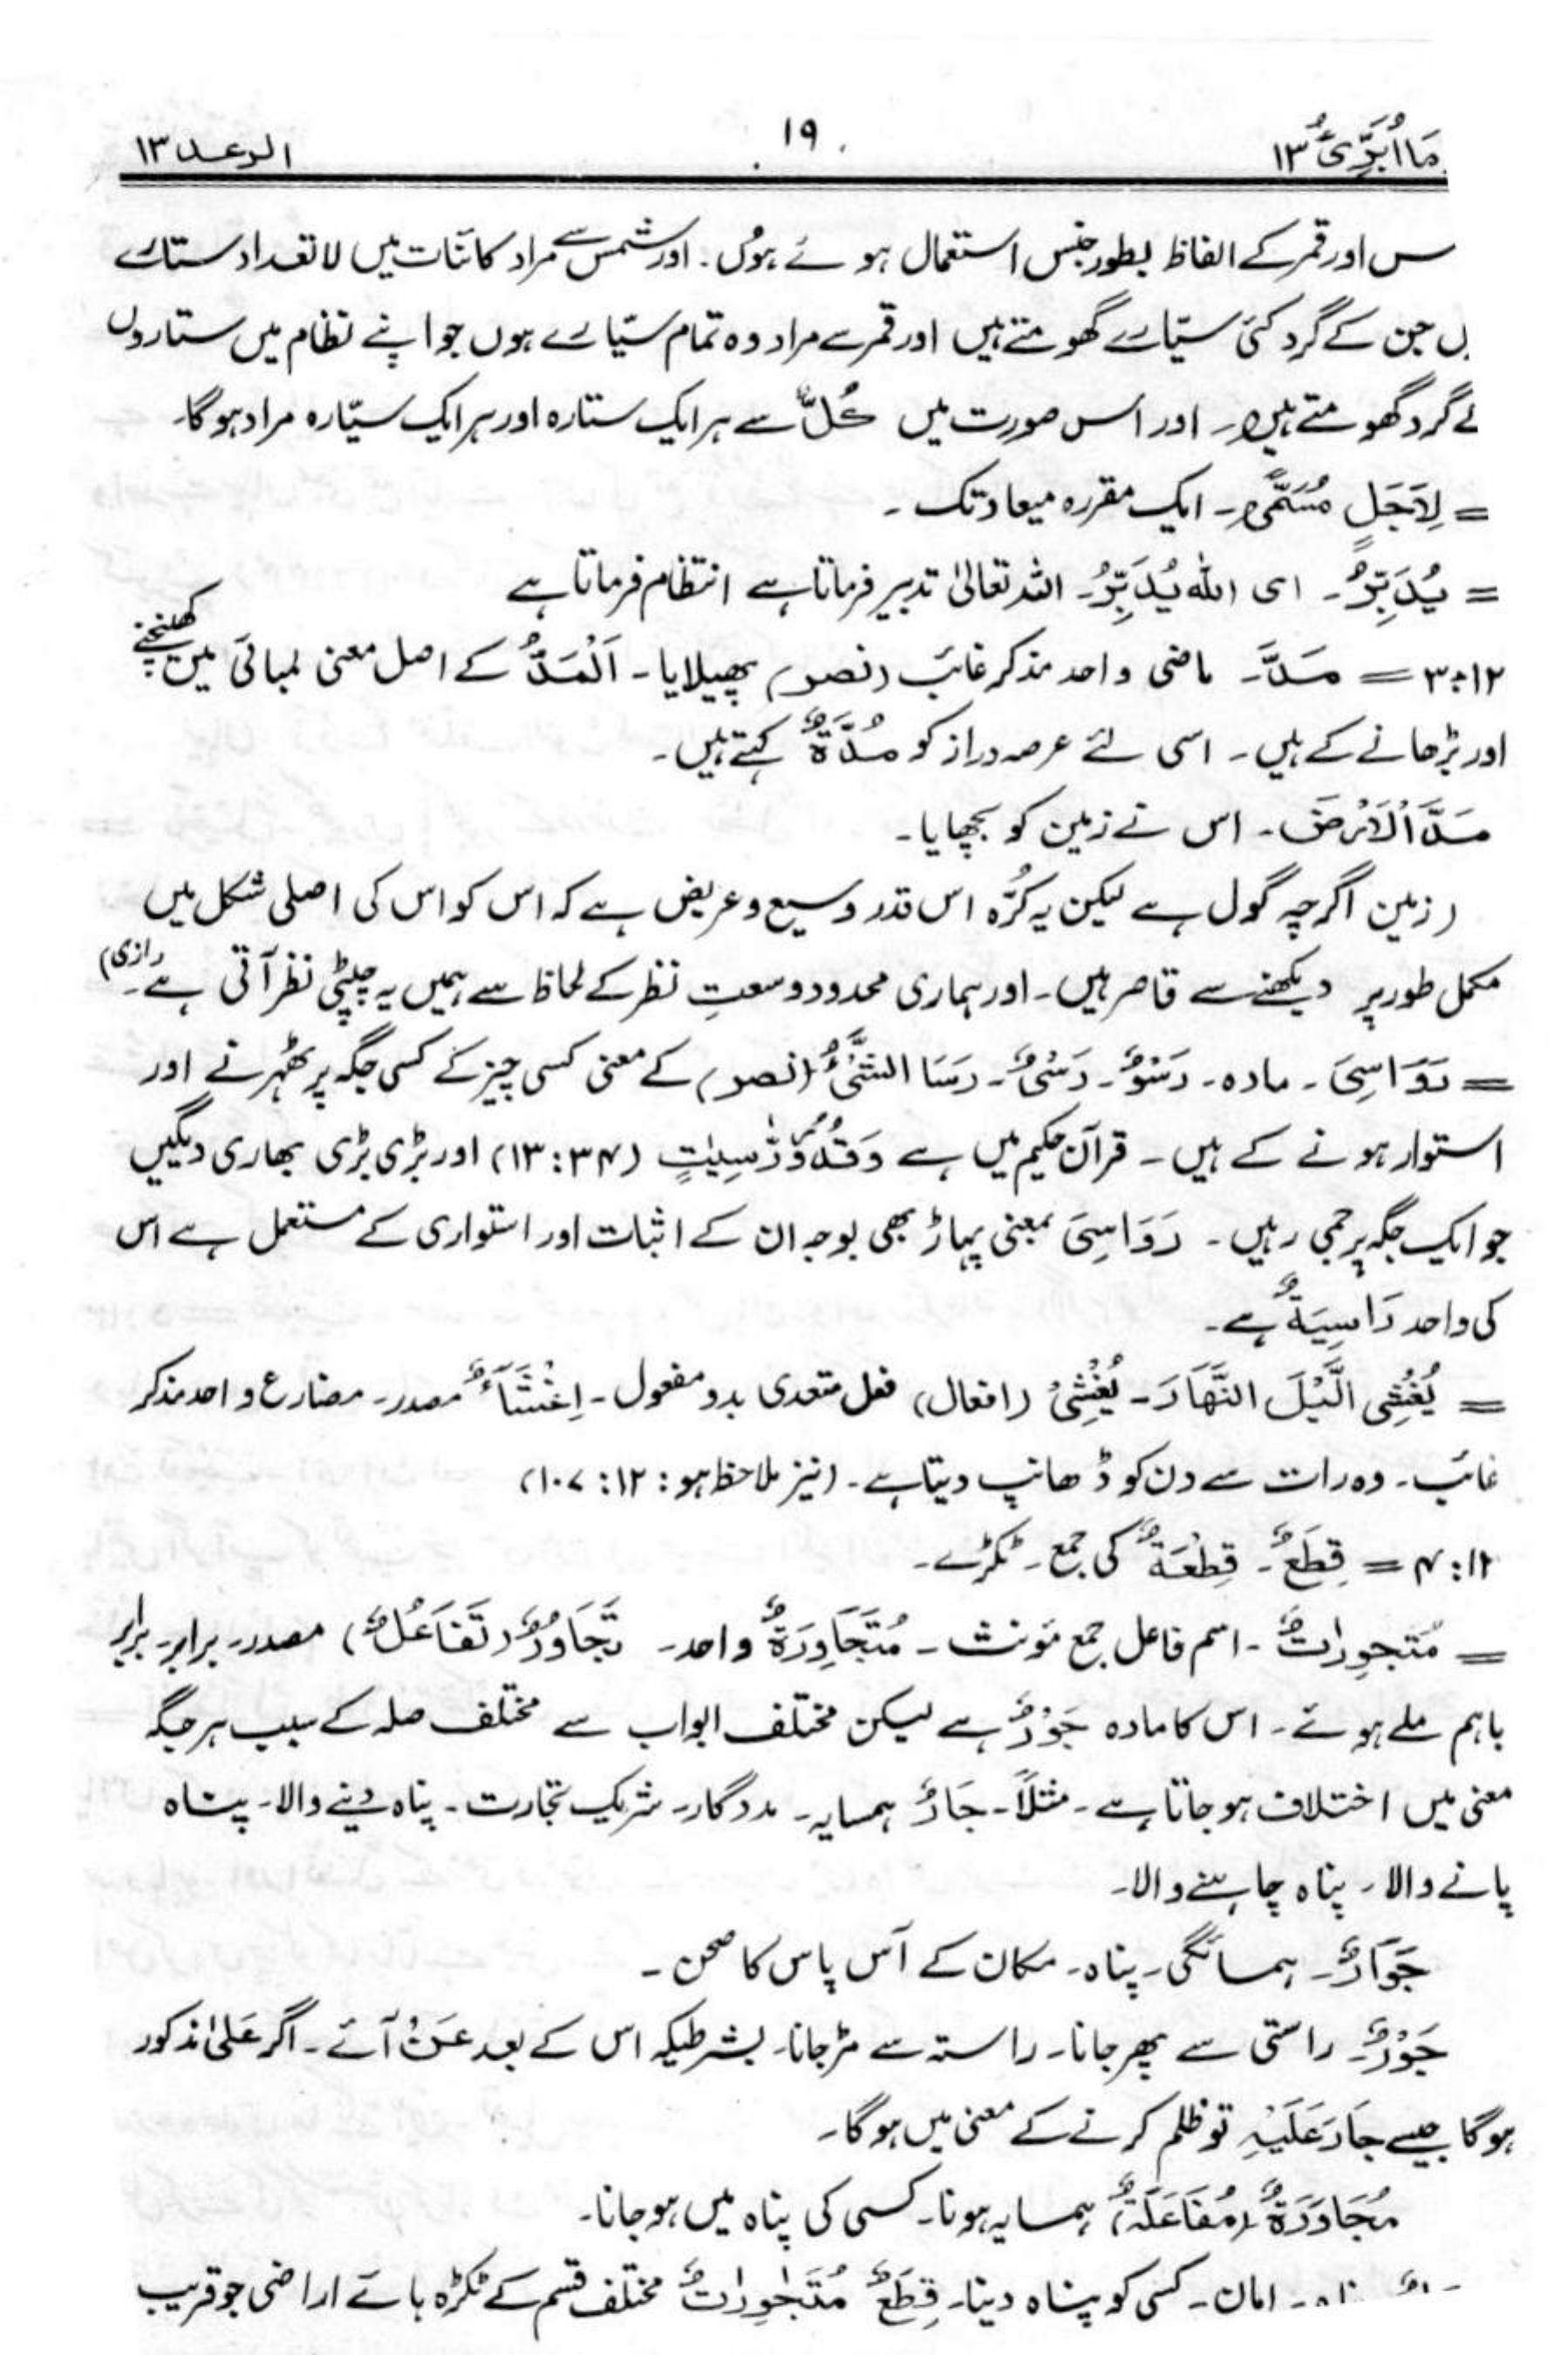 مَا اُبَرِّیُٔ ۱۳
۱۹
الرعد ۱۳
س اور قمر کے الفاظ بطور جنس استعمال ہوئے ہوں۔ اور شمس سے مراد کائنات میں لاتعداد ستارے
ں جن کے گرد کئی سیّارے گھومتے ہیں اور قمر سے مراد وہ تمام سیّارے ہوں جو اپنے نظام میں ستاروں
کے گرد گھومتے ہیں۔ اور اس صورت میں کُلٌّ سے ہر ایک ستارہ اور ہر ایک سیّارہ مراد ہوگا۔
= لِاَجَلٍ مُّسَمًّی۔ ایک مقررہ میعاد تک۔
= یُدَبِّرُ۔ ای اللہ یُدَبِّرُ۔ اللہ تعالیٰ تدبیر فرماتا ہے انتظام فرماتا ہے
۳:۱۲ = مَدَّ۔ ماضی واحد مذکر غائب (نصر) پھیلایا۔ اَلْمَدُّ کے اصل معنی لمبائی میں کھینچنے
اور بڑھانے کے ہیں۔ اسی لئے عرصہ دراز کو مُدَّۃٌ کہتے ہیں۔
مَدَّ الْاَرْضَ۔ اس نے زمین کو بچھایا۔
(زمین اگرچہ گول ہے لیکن یہ کُرّہ اس قدر وسیع و عریض ہے کہ اس کو اس کی اصلی شکل میں
مکمل طور پر دیکھنے سے قاصر ہیں۔ اور ہماری محدود وسعتِ نظر کے لحاظ سے ہمیں یہ چپٹی نظر آتی ہے۔ رازی)
= رَوَاسِیَ۔ مادہ۔ رَسْوٌ۔ رَسْیٌ۔ رَسَا الشَّیْءُ (نصر) کے معنی کسی چیز کے کسی جگہ پر ٹھہرنے اور
استوار ہونے کے ہیں۔ قرآن حکیم میں ہے وَقُدُوْرٍ رّٰسِیٰتٍ (۱۳:۳۴) اور بڑی بڑی بھاری دیگیں
جو ایک جگہ پر جمی رہیں۔ رَوَاسِیَ بمعنی پہاڑ بھی بوجہ ان کے اثبات اور استواری کے مستعمل ہے اس
کی واحد رَاسِیَۃٌ ہے۔
= یُغْشِی الَّیْلَ النَّھَارَ۔ یُغْشِیْ (افعال) فعل متعدی بدو مفعول۔ اِغْشَآءٌ مصدر۔ مضارع واحد مذکر
غائب۔ وہ رات سے دن کو ڈھانپ دیتا ہے۔ (نیز ملاحظہ ہو: ۱۲: ۱۰۷)
۴:۱۲ = قِطَعٌ۔ قِطْعَۃٌ کی جمع۔ ٹکڑے۔
= مُتَجٰوِرٰتٌ۔ اسم فاعل جمع مؤنث۔ مُتَجَاوِرَۃٌ واحد۔ تَجَاوُرٌ (تَفَاعُلٌ) مصدر۔ برابر۔ برابر
باہم ملے ہوئے۔ اس کا مادہ جَوْرٌ ہے لیکن مختلف ابواب سے مختلف صلہ کے سبب ہر جگہ
معنی میں اختلاف ہو جاتا ہے۔ مثلاً۔ جَارٌ ہمسایہ۔ مددگار۔ شریکِ تجارت۔ پناہ دینے والا۔ پناہ
پانے والا۔ پناہ چاہنے والا۔
جَوَارٌ۔ ہمسائگی۔ پناہ۔ مکان کے آس پاس کا صحن۔
جَوْرٌ۔ راستی سے پھر جانا۔ راستہ سے مڑ جانا۔ بشرطیکہ اس کے بعد عَنْ آئے۔ اگر عَلیٰ مذکور
ہوگا جیسے جَارَ عَلَیْہِ تو ظلم کرنے کے معنی میں ہوگا۔
مُجَاوَرَۃٌ (مُفَاعَلَۃٌ) ہمسایہ ہونا۔ کسی کی پناہ میں ہو جانا۔
امان۔ کسی کو پناہ دینا۔ قِطَعٌ مُّتَجٰوِرٰتٌ مختلف قسم کے ٹکڑہ ہائے اراضی جو قریب